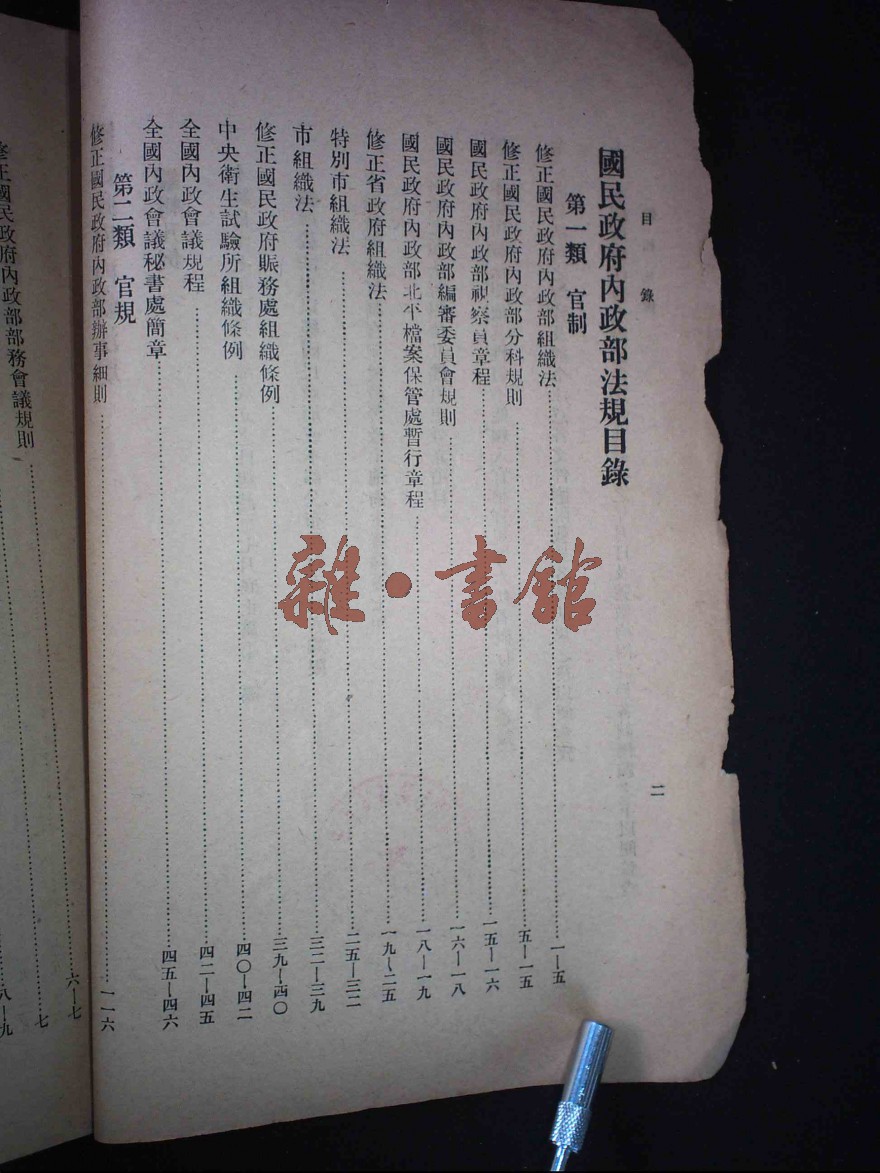 目錄
二
國民政府內政部法規目錄
第一類 官制
修正國民政府內政部組織法……一—五
修正國民政府內政部分科規則……五—一五
國民政府內政部視察員章程……一五—一六
國民政府內政部編審委員會規則……一六—一八
國民政府內政部北平檔案保管處暫行章程……一八—一九
修正省政府組織法……一九—二五
特別市組織法……二五—三二
市組織法……三二—三九
修正國民政府賑務處組織條例……三九—四〇
中央衛生試驗所組織條例……四〇—四二
全國內政會議規程……四二—四五
全國內政會議秘書處簡章……四五—四六
第二類 官規
修正國民政府內政部辦事細則……一—六
六—七
修正國民政府內政部部務會議規則……七
八—九
雜·書館